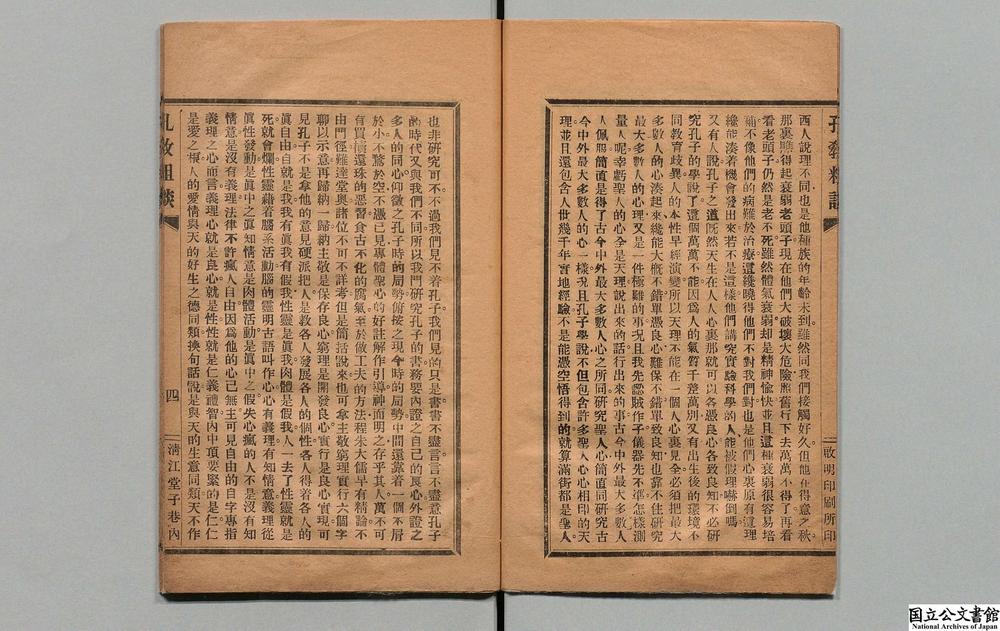 孔教粗談
啟明印刷所印
西人說理不同也是他種族的年齡未到雖然同我們接觸好久但他在得意之秋
那裏曉得起衰弱老頭子現在他們大破壞大危險照舊行下去萬萬不得了再看
看老頭子仍然是老不死雖然體氣衰弱却是精神愉快並且這種衰弱很容易培
補不像他們的病難於治療這纔曉得他們不對我們對也是他們心裏原有這理
纔能湊着機會發出來若不是這樣他們講究實驗科學的人能被假理嚇倒嗎
又有人說孔子之道既然天生在人人心裏那就可以各憑良心各致良知不必研
究孔子的學說了這個萬萬不能因爲人的氣質千差萬別又有出生後的環境不
同教育歧異人的本性早經演變所以天理不能在一個人心裏見全必須把最大
多數人的心湊起來纔能大概不錯單憑良心難保不錯單致良知也靠不住研究
最大多數人的心理又是一件極難的事况且我先認賊作子儀器先不準怎樣測
量人呢幸虧聖人的心全是天理說出來的話行出來的事古今中外最大多數人
人佩服簡直是得了古今中外最大多數人心之所同研究聖人心簡直同研究古
今中外最大多數人的心一樣况且孔子學說不但包含許多聖人心心相印的天
理並且還包含人世幾千年實地經驗不是能憑空悟得到的就算滿街都是聖人
也非研究可不不過我們見不着孔子我們見的只是書書不盡言言不盡意孔子
的時代又與我們不同所以我門研究孔子的書務要內證之自己的良心外證之
多人的同心仰徵之孔子時的局勢俯按之現今時的局勢中間還靠着一個不屑
於小不驚於空不憑己見專體聖心的好註解作引導神而明之存乎其人萬不可
有買櫝還珠的惡習食古不化的腐氣至於做丁夫的方法程朱大儒早有精論不
由門徑難達堂奧諸位不可不詳考但是簡括說來也可拿主敬窮理實行六個字
聊以示意再歸納一歸納主敬是保存良心窮理是開發良心實行是良心實現可
見孔子不是拿他的意見硬派把人是教各人發展各人的個性各人得着各人的
眞自由自就是我我有眞我有假我性靈是眞我肉體是假我人一去了性靈就是
死就會爛性靈藉着腦系活動腦的靈明古語叫作心心有義理有知情意義理從
眞性發動是眞中之眞知情意是肉體活動是眞中之假失心瘋的人不是沒有知
情意是沒有義理法律不許瘋人自由因爲他的心己無主可見自由的自字專指
義理之心而言義理心就是良心就是性性就是仁義禮智內中頂要緊的是仁仁
是愛之根人的愛情與天的好生之德同類換句話說是與天的生意同類天不作
孔教粗談
四
清江堂子巷內
国立公文書館
National Archives of Japan